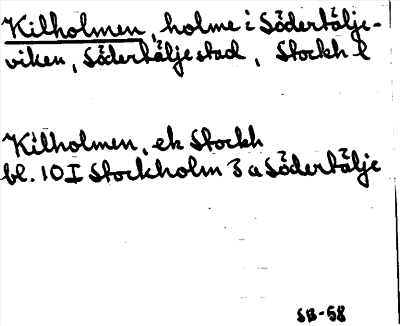 Kilholmen, holme i Södertälje-
viken, Södertälje stad, Stockh l
Kilholmen, ek Stockh
bl. 10I Stockholm 3a Södertälje
SB-58